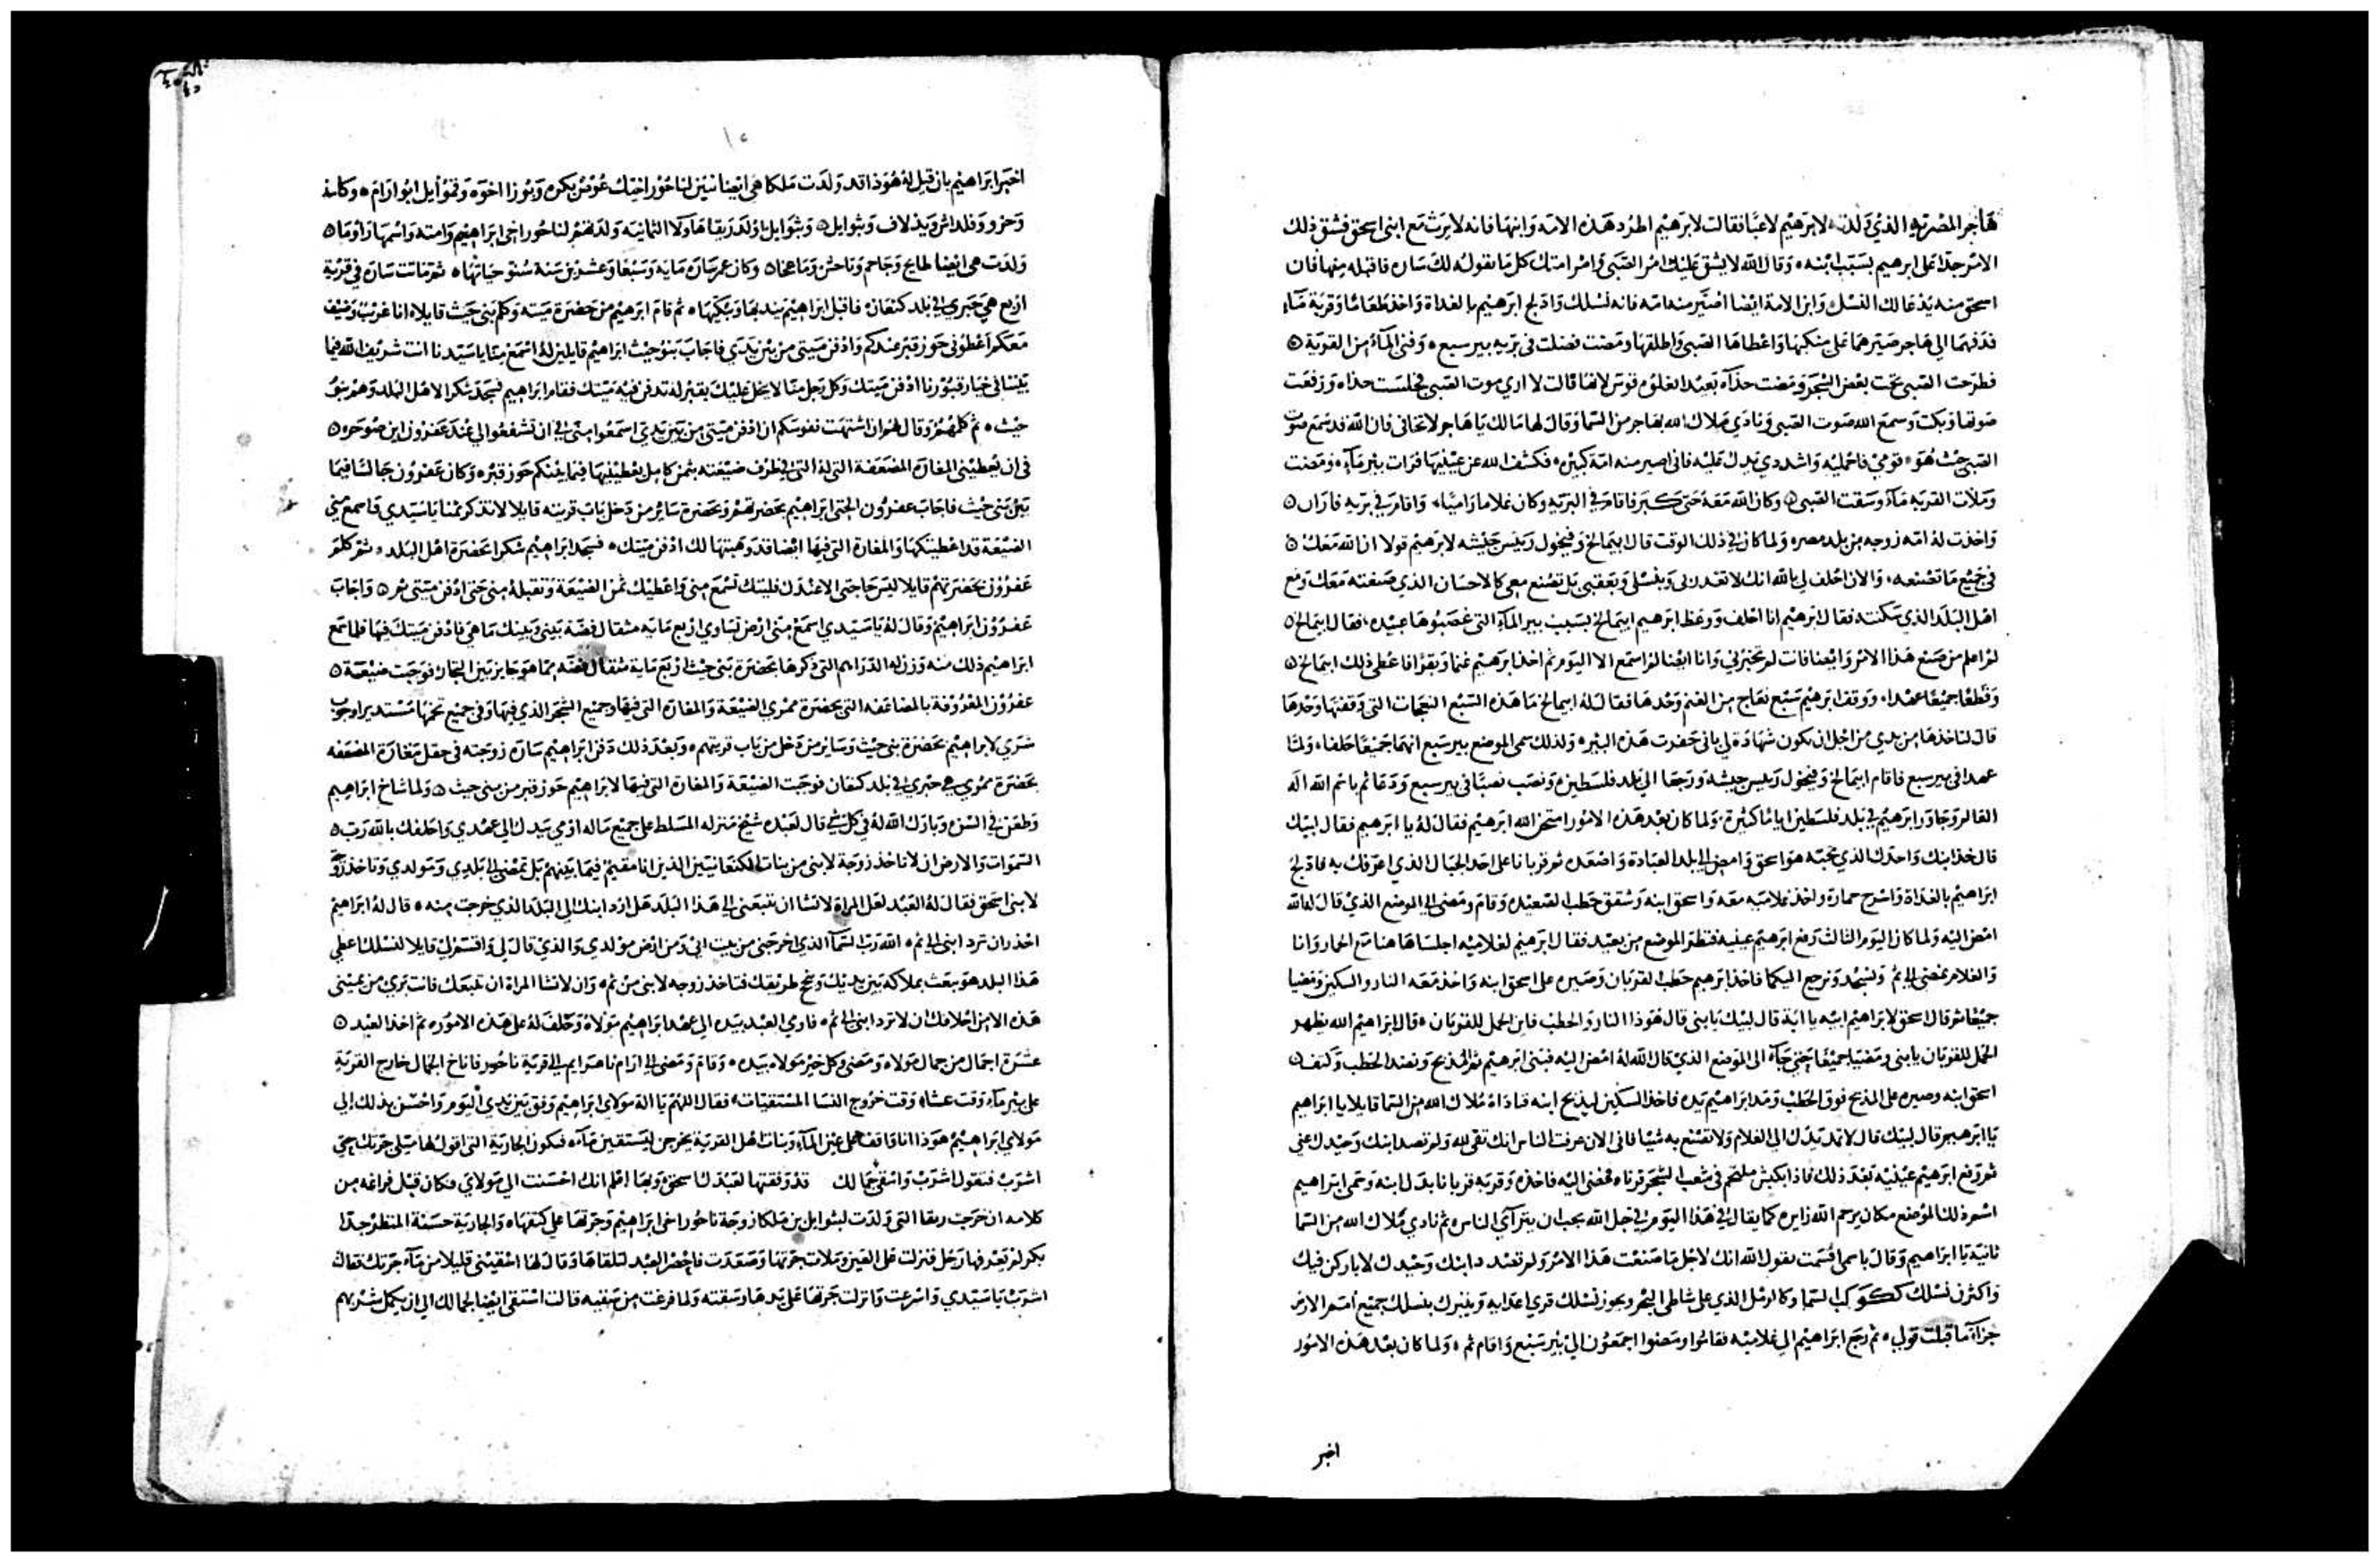 هاجر المصريه الذي ولدته لابرهيم لاعبا فقالت لابرهيم اطرد هذه الامة وابنها فانه لا يرث مع ابني اسحق فشق ذلك
الامر جدا على ابرهيم بسبب ابنه ه وقال الله لا يشق عليك امر الصبي وامر امتك كل ما تقوله لك ساره فاقبله منها فان
اسحق منه يدعا لك النسل وابن الامة ايضا اصير منه امه فانه نسلك وادلج ابرهيم بالغداة واخذ طعاما وقربة ماء
فدفهما الي هاجر صيرهما على منكبها واعطاها الصبي واطلقها ومضت فضلت في بريه بير سبع ه وفني الماء من القربة ه
فطرحت الصبي تحت بعض الشجر ومضت حذآه بعيد الغلوة قوس لانها قالت لا اري موت الصبي فجلست حذاه ورفعت
صوتها وبكت وسمع الله صوت الصبي ونادي ملاك الله بهاجر من السما وقال لها مالك يا هاجر لا تخافي فان الله قد سمع صوت
الصبي حيث هو ه قومي فاحمليه واشددي يدك عليه فاني اصير منه امة كبيره ه فكشف الله عن عينيها فرات بير مآء ومضت
وملات القربه مآء وسقت الصبي ه وكان الله معه حتى كبر فاقام في البريه وكان غلاما راميا ه واقام في بريه فاران ه
واخذت له امه زوجه من بلد مصر ه ولما كان في ذلك الوقت قال ابيمالخ وفيخول رييس جيشه لابرهيم قولا ان الله معك ه
في جميع ما تصنعه ه والان احلف لي بالله انك لا تغدر بي وبنسلي وبعقبي بل تصنع معي كالاحسان الذي صنعته معك ومع
اهل البلد الذي سكنته فقال ابرهيم انا احلف ووعظ ابرهيم ابيمالخ بسبب بير المآء التي غصبوها عبيده فقال ابيمالخ ه
لم اعلم من صنع هذا الامر وايضا فانت لم تخبرني وانا ايضا لم اسمع الا اليوم ثم اخذ ابرهيم غنما وبقرا فاعطي ذلك ابيمالخ ه
وقطعا جميعا عهدا ه ووقف ابرهيم سبع نعاج من الغنم وحدها فقال له ابيمالخ ما هذه السبع النعجات التي وقفتها وحدها
قال لتاخذها من يدي من اجل ان تكون شهادة لي باني حفرت هذه البير ه ولذلك سمي الموضع بير سبع انهما جميعا حلفا ه ولما
عهدا في بير سبع فاقام ابيمالخ وفيخول رييس جيشه ورجعا الي بلد فلسطين ه ونصب نصبا في بير سبع ودعا ثم باسم الله اله
العالم وجاور ابرهيم في بلد فلسطين اياما كثيرة ه ولما كان بعد هذه الامور امتحن الله ابرهيم فقال له يا ابرهيم فقال لبيك
قال خذ ابنك واحدك الذي تحبه هو اسحق وامض الي بلد العبادة واصعده ثم قربانا على احد الجبال الذي اعرفك به فادلج
ابراهيم بالغداة واسرج حمارة واخذ غلاميه معه واسحق ابنه وشقق حطب لصعيده وقام ومضي الي الموضع الذي قال له الله
امض اليه ولما كان اليوم الثالث رفع ابرهيم عينيه فنظر الموضع من بعيد فقال ابرهيم لغلاميه اجلسا هاهنا مع الحمار وانا
والغلام نمضي الي ثم ونسجد ونرجع اليكما فاخذ ابرهيم حطب القربان وصيره على اسحق ابنه واخذ معه النار والسكين ومضيا
جميعا ثم قال اسحق لابراهيم ابيه يا ابة قال لبيك يا بني قال هوذا النار والحطب فاين الحمل للقربان ه قال ابراهيم الله يظهر
الحمل للقربان يا بني ومضيا جميعا حتي جآء الى الموضع الذي قال الله له امض اليه فبني ابرهيم ثم المذبح ونضد الحطب وكتف ه
اسحق ابنه وصيره على المذبح فوق الحطب ومد ابراهيم يده فاخذ السكين ليذبح ابنه فناداه ملاك الله من السما قايلا يا ابراهيم
يا ابرهيم قال لبيك قال لا تمد يدك الي الغلام ولا تصنع به شيا فاني الان عرفت الناس انك تقي لله ولم تصد ابنك وحيدك عني
ثم رفع ابرهيم عينيه بعد ذلك فاذا بكبش ملتحم في شعب الشجر قرناه فمضي اليه فاخذه وقربه قربانا بدل ابنه وسمي ابراهيم
اسم ذلك الموضع مكان يرحم الله زايره كما يقال في هذا اليوم في جبل الله يجب ان يترآي الناس ه ثم نادي ملاك الله من السما
ثانية يا ابراهيم وقال باسمي اقسمت يقول الله انك لاجل ما صنعت هذا الامر ولم تصد ابنك وحيدك لاباركن فيك
واكثرن نسلك ككوكب السما وكالرمل الذي على شاطي البحر ويحوز نسلك قري اعدايه ويتبرك بنسلك جميع امم الارض
جزآء ما قبلت قولي ه ثم رجع ابراهيم الي غلاميه فقاموا ومضوا اجمعون الي بير سبع واقام ثم ه ولما كان بعد هذه الامور
اخبر
اخبر ابراهيم بان قيل له هوذا قد ولدت ملكا هي ايضا بنين لناحور اخيك عوص بكره وبوزا اخوه وقموايل ابو ارام ه وكاسد
وحزو وفلداش ويدلاف وبتوايل ه وبتوايل اولد ربقا هاولا الثمانيه ولدتهم لناحور اخي ابراهيم وامته واسمها راوما ه
ولدت هي ايضا طابح وجاحم وتاحش وماعخا ه وكان عمر ساره مايه وسبعا وعشرين سنة سنو حياتها ه ثم ماتت ساره في قرية
اربع هي حبري في بلد كنعان ه فاقبل ابراهيم يندبها ويبكيها ه ثم قام ابرهيم من حضرة ميته وكلم بني حيث قايلا ه انا غريب وضيف
معكم اعطوني حوز قبر عندكم وادفن ميتي من بين يدي فاجاب بنو حيث ابراهيم قايلين له اسمع منا يا سيدنا انت شريف الله فيما
بيننا في خيار قبورنا ادفن ميتك وكل رجل منا لا يبخل عليك بقبر له تدفن فيه ميتك فقام ابراهيم فسجد شكرا لاهل البلد وهم بنو
حيث ه ثم كلمهم وقال لهم ان اشتهت نفوسكم ان ادفن ميتي من بين يدي اسمعوا مني في ان تشفعوا لي عند عفرون ابن صوحره
في ان يعطيني المغاره المضعفة التي له التي في طرف ضيعته بثمن كامل يعطينيها فيما بينكم حوز قبر ه وكان عفرون جالسا فيما
بين بني حيث فاجاب عفرون الحتي ابراهيم بحضرتهم وبحضرة ساير من دخل باب قريته قايلا لا تذكر ثمنا يا سيدي فاسمع مني
الضيعة قد اعطيتكها والمغارة التي فيها ايضا قد وهبتها لك ادفن ميتك ه فسجد ابراهيم شكرا بحضرة اهل البلد ه ثم كلم
عفرون بحضرتهم قايلا ليس حاجتي الا عندك فليتك تسمع مني واعطيك ثمن الضيعة وتقبله مني حتى ادفن ميتي ثم ه واجاب
عفرون ابراهيم وقال له يا سيدي اسمع مني ارض تساوي اربع مايه مثقال فضة بيني وبينك ما هي فادفن ميتك فيها فلما سمع
ابراهيم ذلك منه وزن له الدراهم التي ذكرها بحضرة بني حيث اربع ماية مثقال فضه مما هو جايز بين التجار فوجبت ضيعة ه
عفرون المعروفة بالمضاعفه التي بحضرة ممري الضيعة والمغاره التي فيها وجميع الشجر الذي فيها وفي جميع تخمها مستديرا وجوب
شري لابراهيم بحضرة بني حيث وساير من دخل من باب قريتهم ه وبعد ذلك دفن ابراهيم ساره زوجته في حقل مغارة المضعفه
بحضرة ممري هي حبري في بلد كنعان فوجبت الضيعة والمغاره التي فيها لابراهيم حوز قبر من بني حيث ه ولما شاخ ابراهيم
وطعن في السن ه وبارك الله له في كل شي قال لعبده شيخ منزله المسلط على جميع ماله اومي بيدك الي عهدي واحلفك بالله رب ه
السموات والارض ان لا تاخذ زوجة لابني من بنات الكنعانيين الذين انا مقيم فيما بينهم بل تمضي الي بلدي ومولدي وتاخذ زوجة
لابني اسحق فقال له العبد لعل المراة لا تشا ان تتبعني الي هذا البلد هل ارد ابنك الي البلد الذي خرجت منه ه قال له ابراهيم
احذر ان ترد ابني الي ثم ه الله رب السمآ الذي اخرجني من بيت ابي ومن ارض مولدي والذي قال لي واقسم لي قايلا لنسلك اعطي
هذا البلد هو يبعث بملاكه بين يديك وينجح طريقك فتاخذ زوجه لابني من ثم ه وان لا تشا المراة ان تتبعك فانت بري من يميني
هذه الا من احلافك ان لا ترد ابني الي ثم ه فاومي العبد بيده الي عهد ابراهيم مولاه وحلف له على هذه الامور ه ثم اخذ العبد ه
عشرة اجمال من جمال مولاه ومضي وكل خير مولاه بيده ه وقام ومضي الي ارام ناهرايم الي قرية ناحور فاناخ الجمال خارج القرية
على بير مآء وقت عشاه وقت خروج النسا المستقيات ه فقال اللهم يا اله مولاي ابراهيم وفق بين يدي اليوم واحسن بذلك الي
مولاي ابراهيم هوذا انا واقف على عين المآء وبنات اهل القرية يخرجن ليستقين مآء ه فتكون الجارية التي اقول لها ميلي جرتك حتي
اشرب فتقول اشرب واسقي جمالك قد وفقتها لعبدك اسحق وبها اعلم انك احسنت الي مولاي فكان قبل فراغه من
كلامه ان خرجت ربقا التي ولدت لبتوايل بن ملكا زوجة ناحور اخي ابراهيم وجرتها على كتفها ه والجارية حسنة المنظر جدا
بكر لم يعرفها رجل فنزلت على العين وملات جرتها وصعدت فاحضر العبد لتلقاها وقال لها اسقيني قليلا من مآء جرتك فقالت
اشرب يا سيدي واسرعت وانزلت جرتها على يدها وسقته ولما فرغت من سقيه قالت استقي ايضا لجمالك الي ان يكمل شربهم